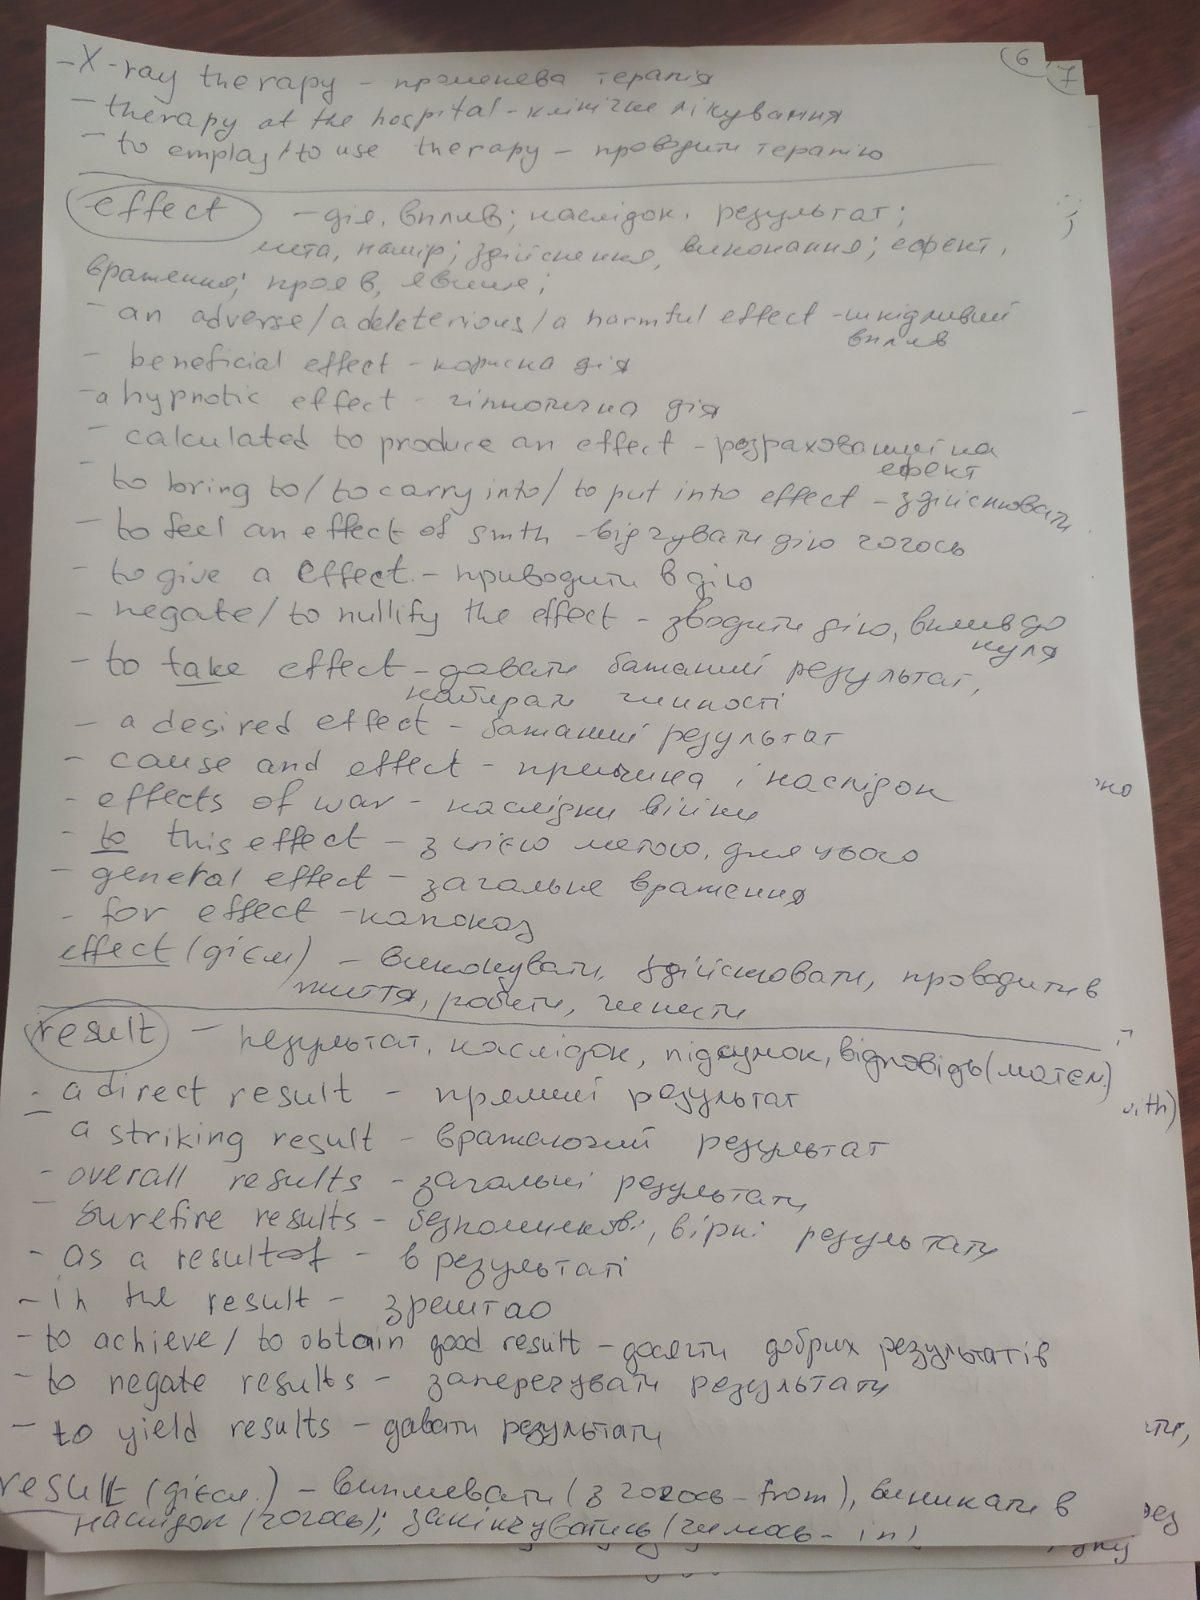 6
7
- X-ray therapy – променева терапія
- therapy at the hospital - клінічне лікування
- to employ/to use therapy – проводити терапію
effect – дія, вплив; наслідок, результат;
мета, намір; здійснення, виконання; ефект,
враження; прояв, явище;
- an adverse/a deleterious/a harmful effect - шкідливий
вплив
- beneficial effect - корисна дія
- a hypnotic effect - гіпнотична дія
- calculated to produce an effect - розрахований на
ефект
- to bring to/to carry into/to put into effect – здійснювати
- to feel an effect of smth - відчувати дію чогось
- to give a effect. – приводити в дію
- negate/to nullify the effect - зводити дію, вплив до
нуля
- to take effect – давати бажаний результат,
набирати чинності
- a desired effect - бажаний результат
- cause and effect - причина і наслідок
- effects of war - наслідки війни
- to this effect – з цією метою, для цього
- general effect – загальне враження
- for effect - напоказ
effect (дієсл) – виконувати, здійснювати, проводити в
життя, робити, чинити
result – результат, наслідок, підсумок, відповідь (матем.)
- a direct result - прямий результат
- a striking result - вражаючий результат
- overall results - загальні результати
- surefire results - безпомилкові, вірні результати
- as a result of - в результаті
- in the result - зрештою
- to achieve/to obtain good result – досягти добрих результатів
- to negate results - заперечувати результати
- to yield results – давати результати
result (дієсл.) – випливати (з чогось - from), виникати в
наслідок (чогось); закінчуватись (чимось - in)